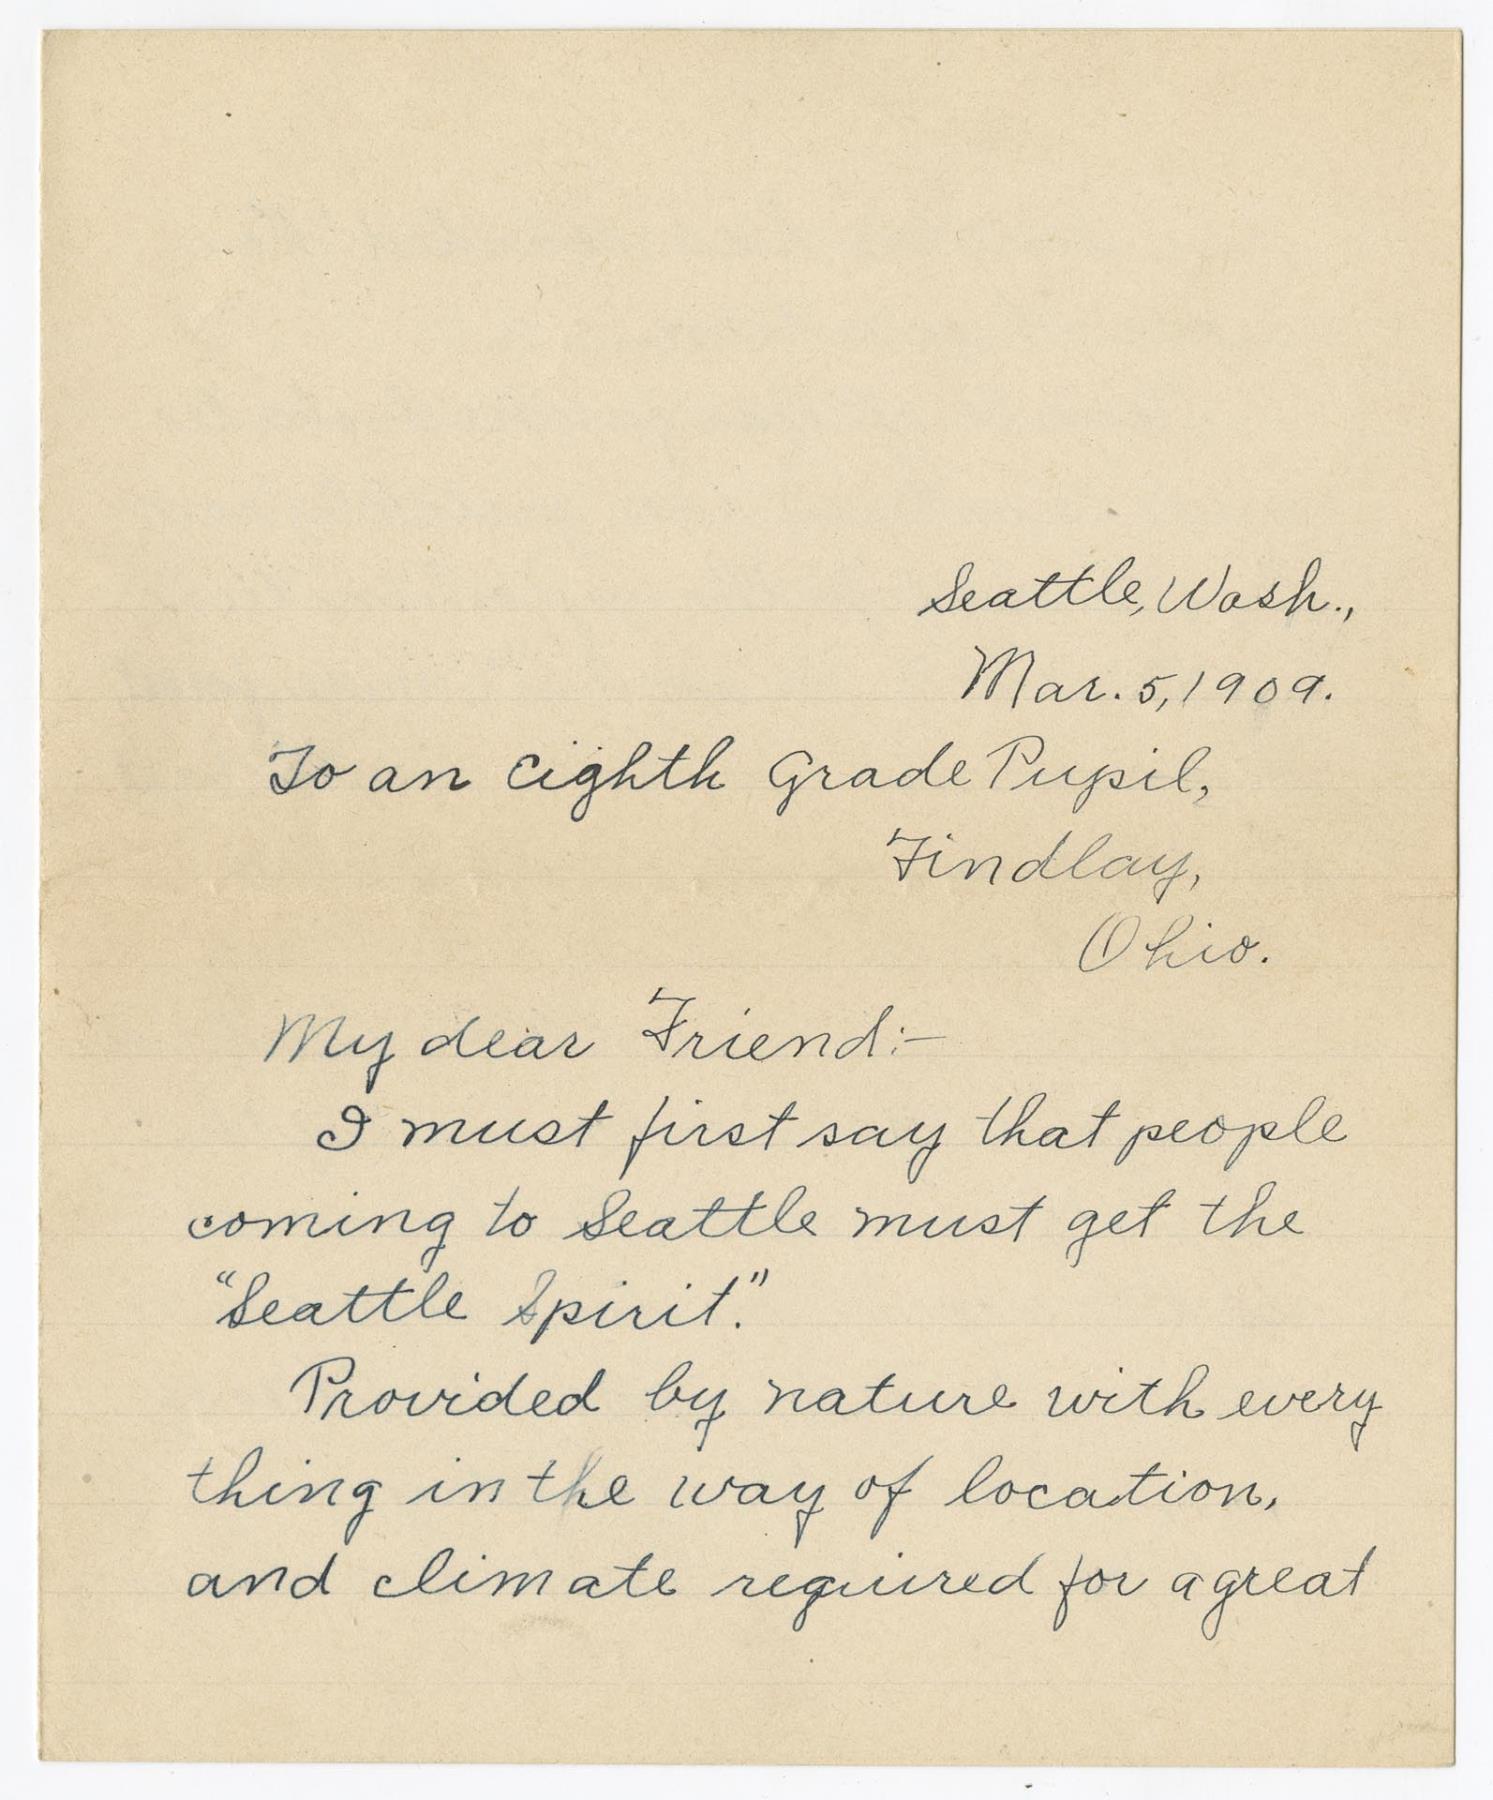 Seattle, Wash.,
Mar. 5, 1909.
To an Eighth Grade Pupil,
Findlay,
Ohio.
My dear Friend:-
I must first say that people
coming to Seattle must get the
"Seattle Spirit."
Provided by nature with every
thing in the way of location,
and climate required for a great